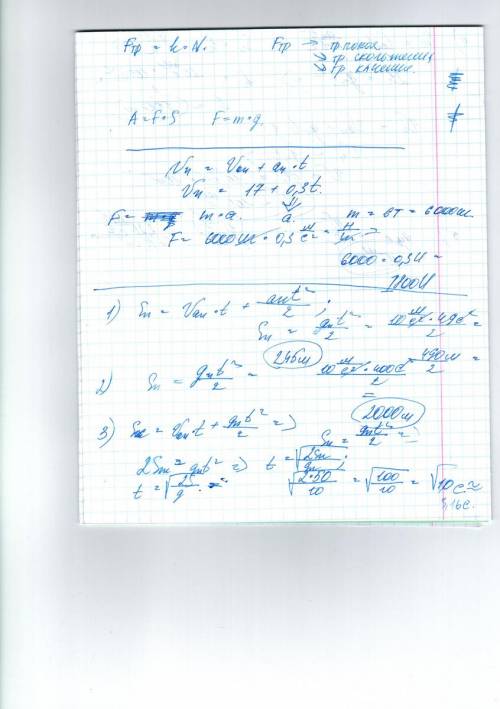 Fтр = k • N.
Fтр → тр покоя
→ тр. скольжения
→ тр. качение.
A = F • S F = m • g.
Vx = Vox + ax • t
Vx = 17 + 0,3t.
F = m • a. a. m = 6т = 6000кг
F = 6000кг • 0,3 м/с² =
6000 • 0,3Н =
1800Н
1) Sx = Vox • t + axt²/2 ;
Sx = gxt²/2 = 10 м/с² • 49с²/2 =
490м/2 = 245м
2) Sx = gxt²/2 = 10 м/с² • 400с²/2 =
2000м
3) Sx = Vox • t + gxt²/2 =>
Sx = gxt²/2 =
2Sx = gxt² => t = √2Sx/gx ;
t = √2S/g . √2•50/10 = √100/10 = √10 с ≈
3,16с.